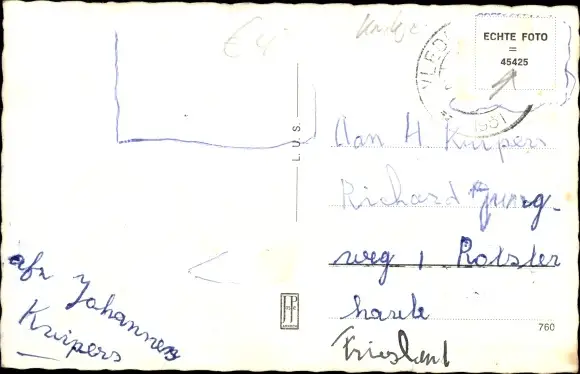 € 4
ECHTE FOTO
=
45425
VLED
1951
L.U.S.
Aan H Kuipers
Richard Jung-
weg 1 Rotster
haule
Friesland
760
afz Johannes
Kuipers